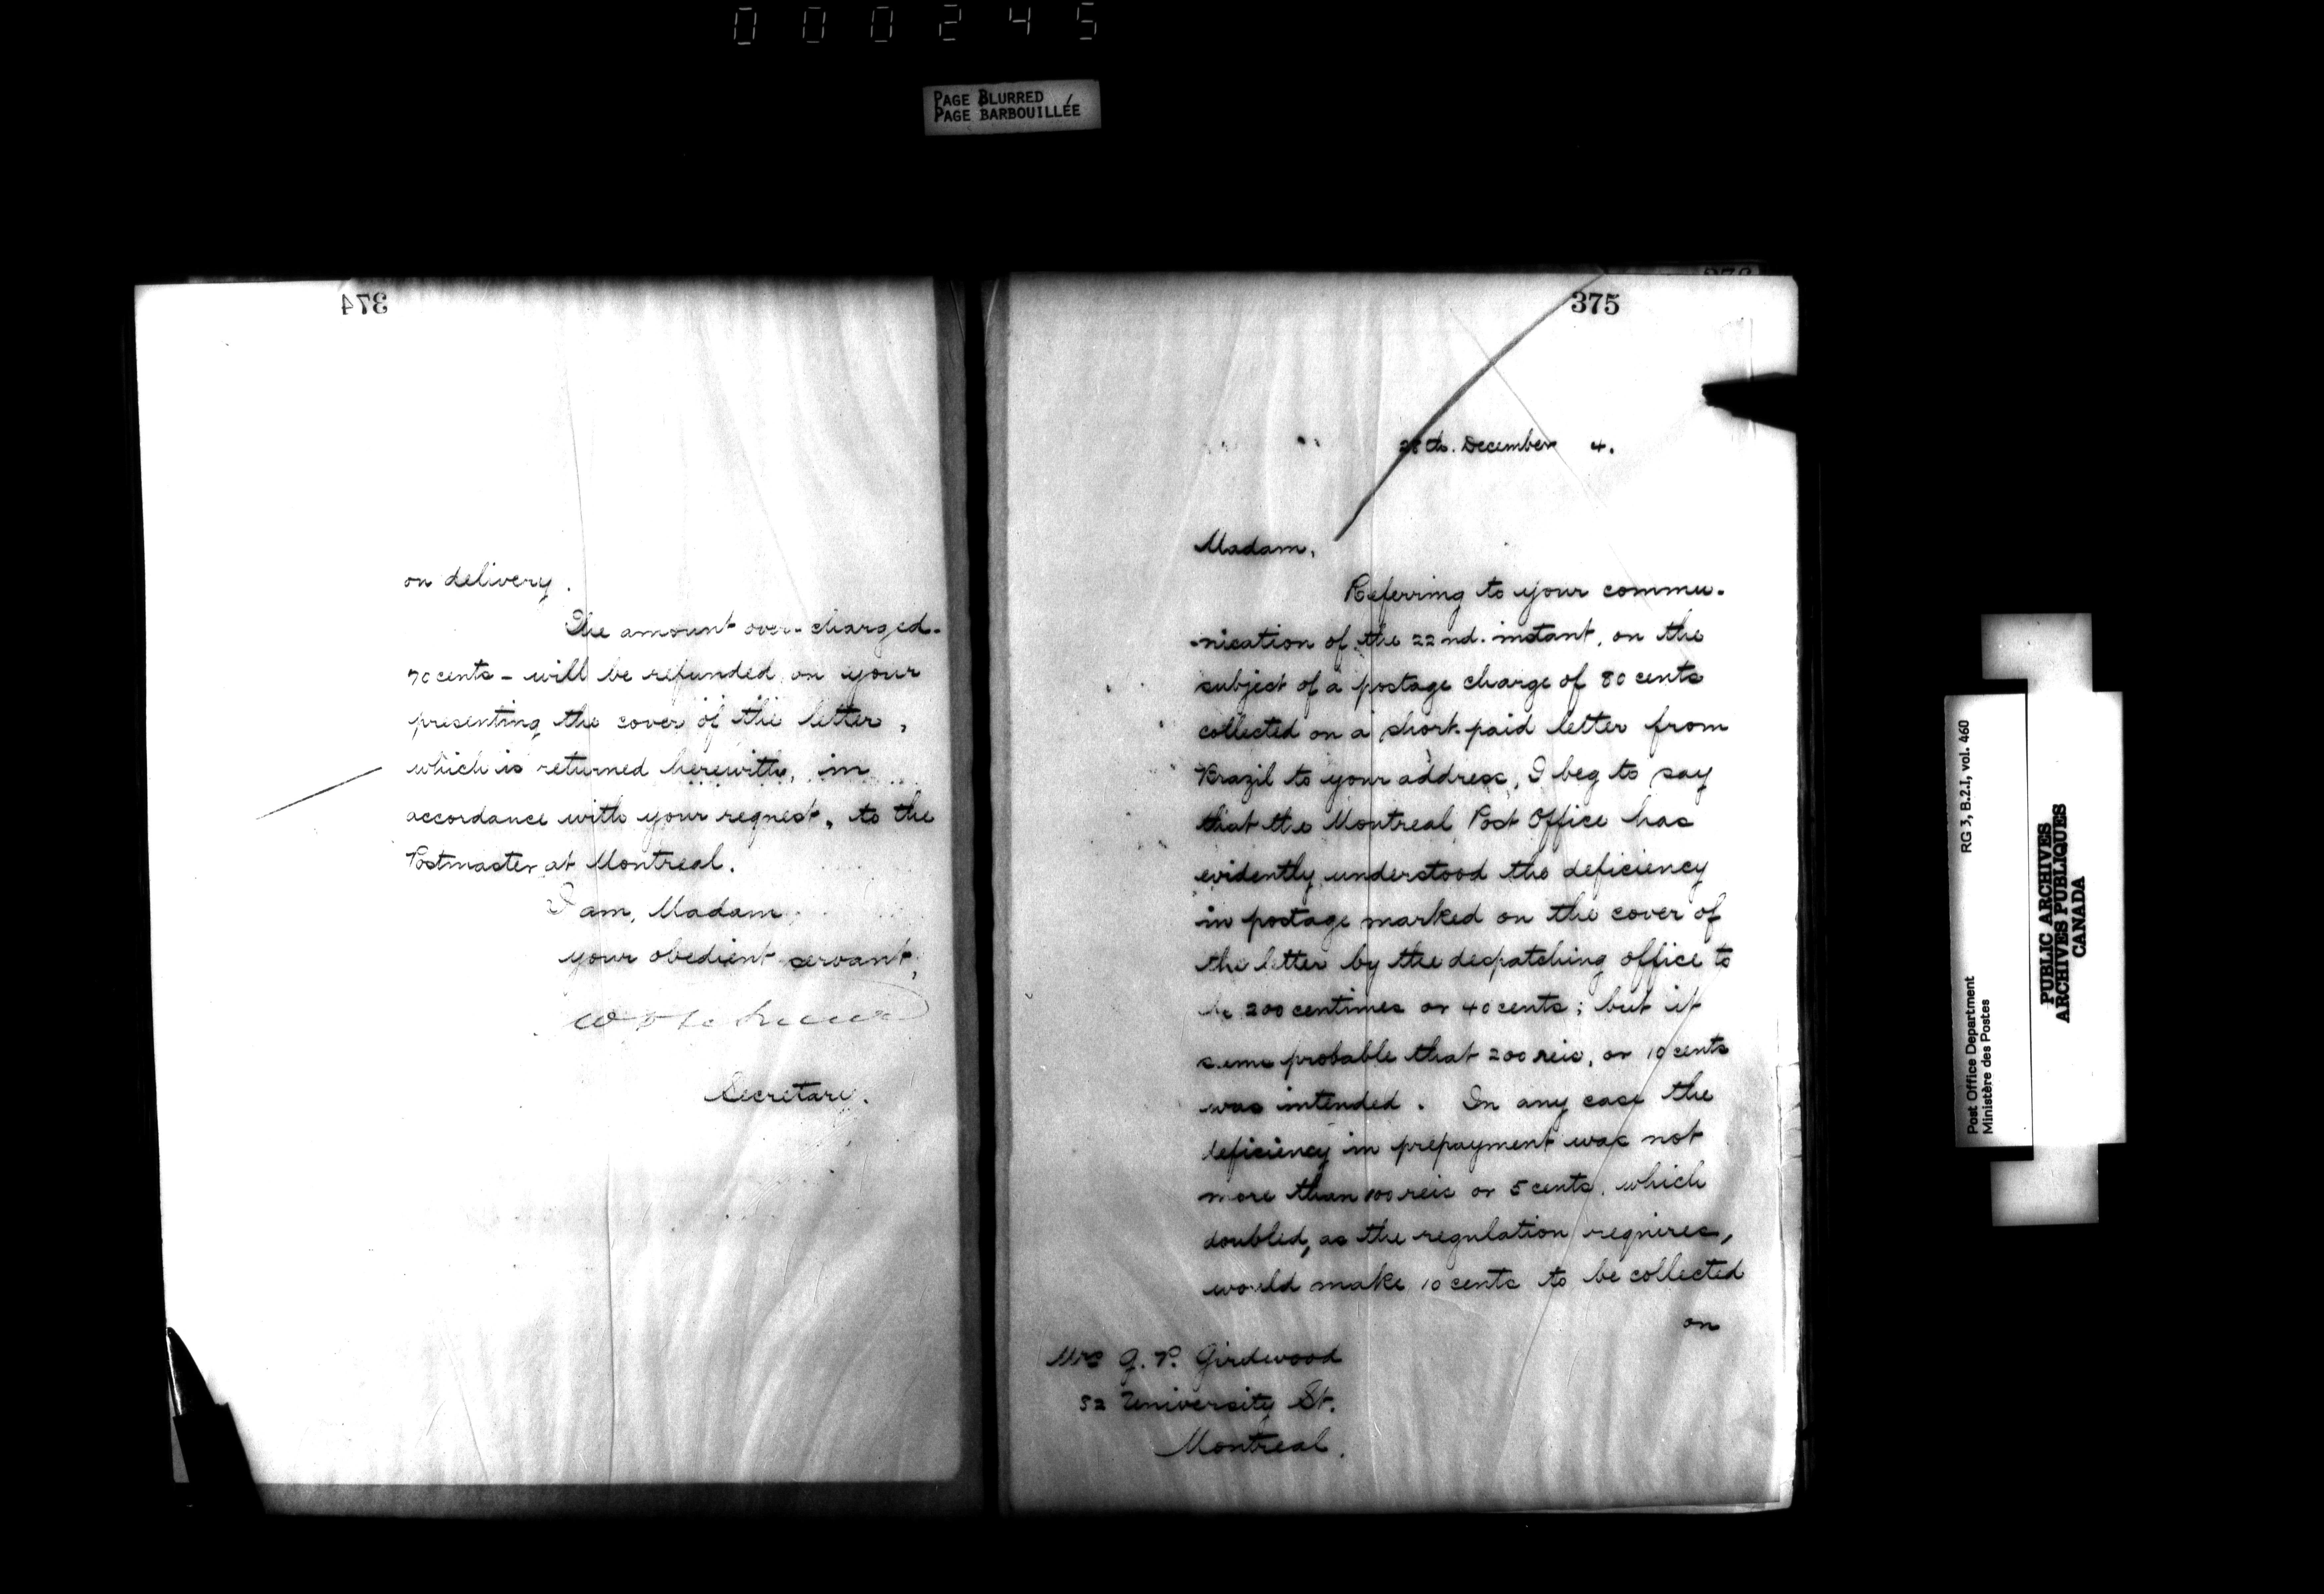 000245
PAGE BLURRED
PAGE BARBOUILLÉE
374
on delivery.
The amount over-charged-
70 cents - will be refunded on your
presenting the cover of the letter,
which is returned herewith, in
accordance with your request, to the
Postmaster at Montreal.
I am, Madam
your obedient servant,
Secretary.
375
28th. December 4.
Madam,
Referring to your commu-
-nication of the 22nd. instant, on the
subject of a postage charge of 80 cents
collected on a short-paid letter from
Brazil to your address, I beg to say
that the Montreal Post Office has
evidently understood the deficiency
in postage marked on the cover of
the letter by the despatching office to
be 200 centimes or 40 cents; but it
seems probable that 200 reis, or 10 cents
was intended. In any case the
deficiency in prepayment was not
more than 100 reis or 5 cents, which
doubled, as the regulation requires,
would make 10 cents to be collected
on
Mrs G. P. Girdwood
52 University St.
Montreal.
Post Office Department RG 3, B.2.1, vol. 460
Ministère des Postes
PUBLIC ARCHIVES
ARCHIVES PUBLIQUES
CANADA